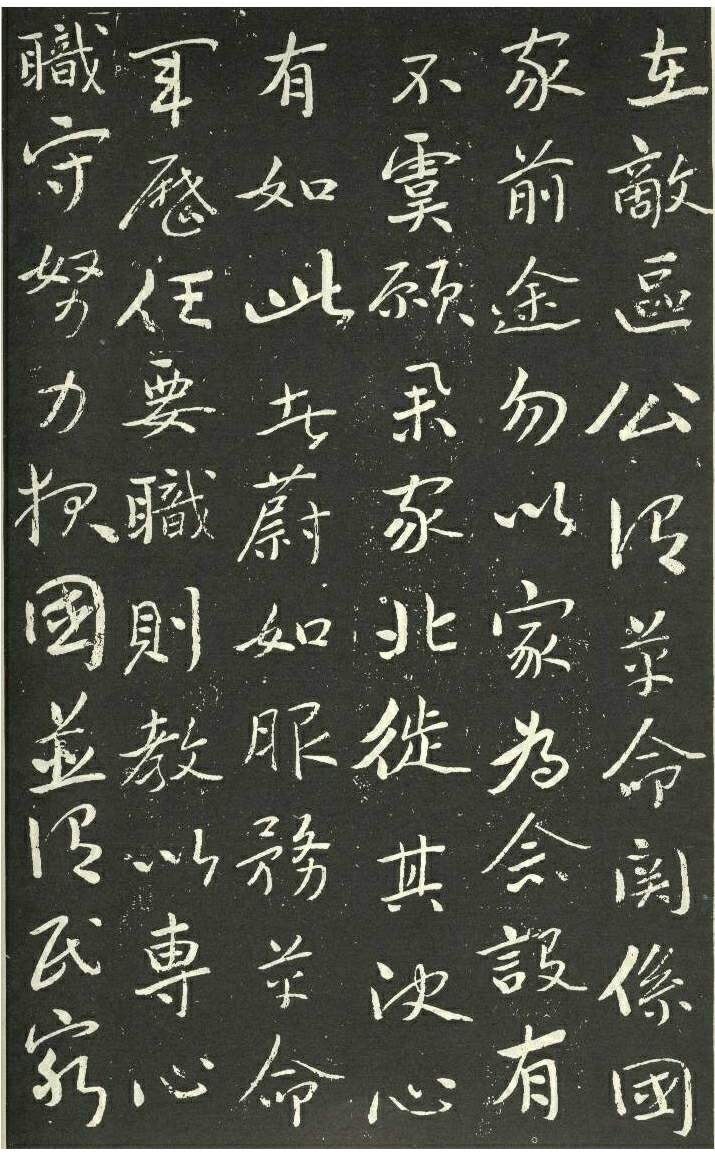 在敵區公謂革命関係國
家前途勿以家為念設有
不虞願罙家北徙其決心
有如此者蔚如服務革命
耳歷任要職則教以專心
職守努力挽國並謂民窮